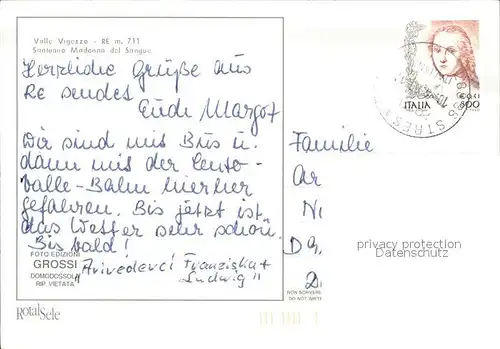 Valle Vigezzo - RE m. 711
Santuario Madonna del Sangue
Herzliche Grüße aus
Re sendet
Eure Margot
Wir sind mit Bus u.
dann mit der Cento-
valle-Bahn hierher
gefahren. Bis jetzt ist
das Wetter sehr schön.
Bis bald!
Arivederci Franziska +
Ludwig"
FOTO EDIZIONI
GROSSI
DOMODOSSOLA
RIP. VIETATA
RotalSele
ITALIA
800
STRESA
Familie
Ar
N
D
privacy protection
Datenschutz
NON SCRIVERE
DO NOT WRITE